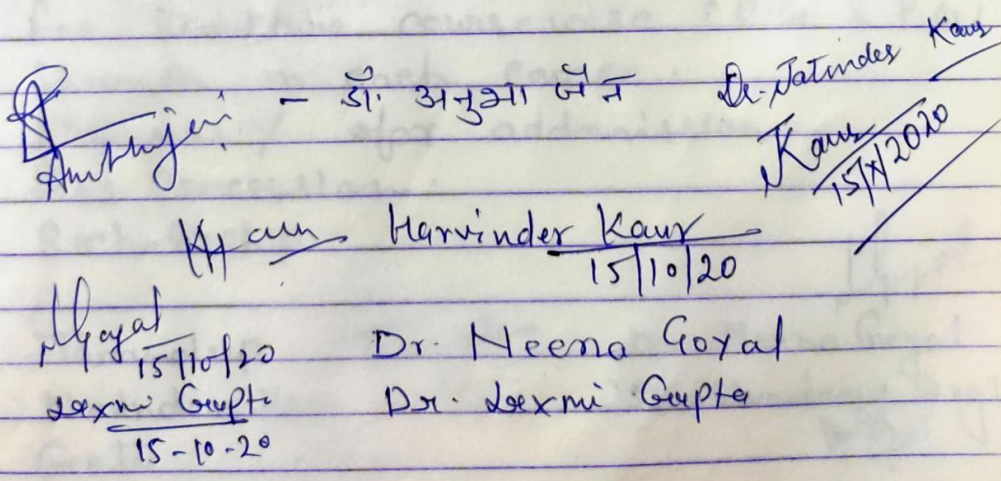 Anubhajain - डॉ. अनुभा जैन Dr. Jatinder Kaur
Kaur
15/X/2020
HKaur Harvinder Kaur
15/10/20
NGoyal
15/10/20 Dr. Neena Goyal
Laxmi Gupta Dr. Laxmi Gupta
15-10-20